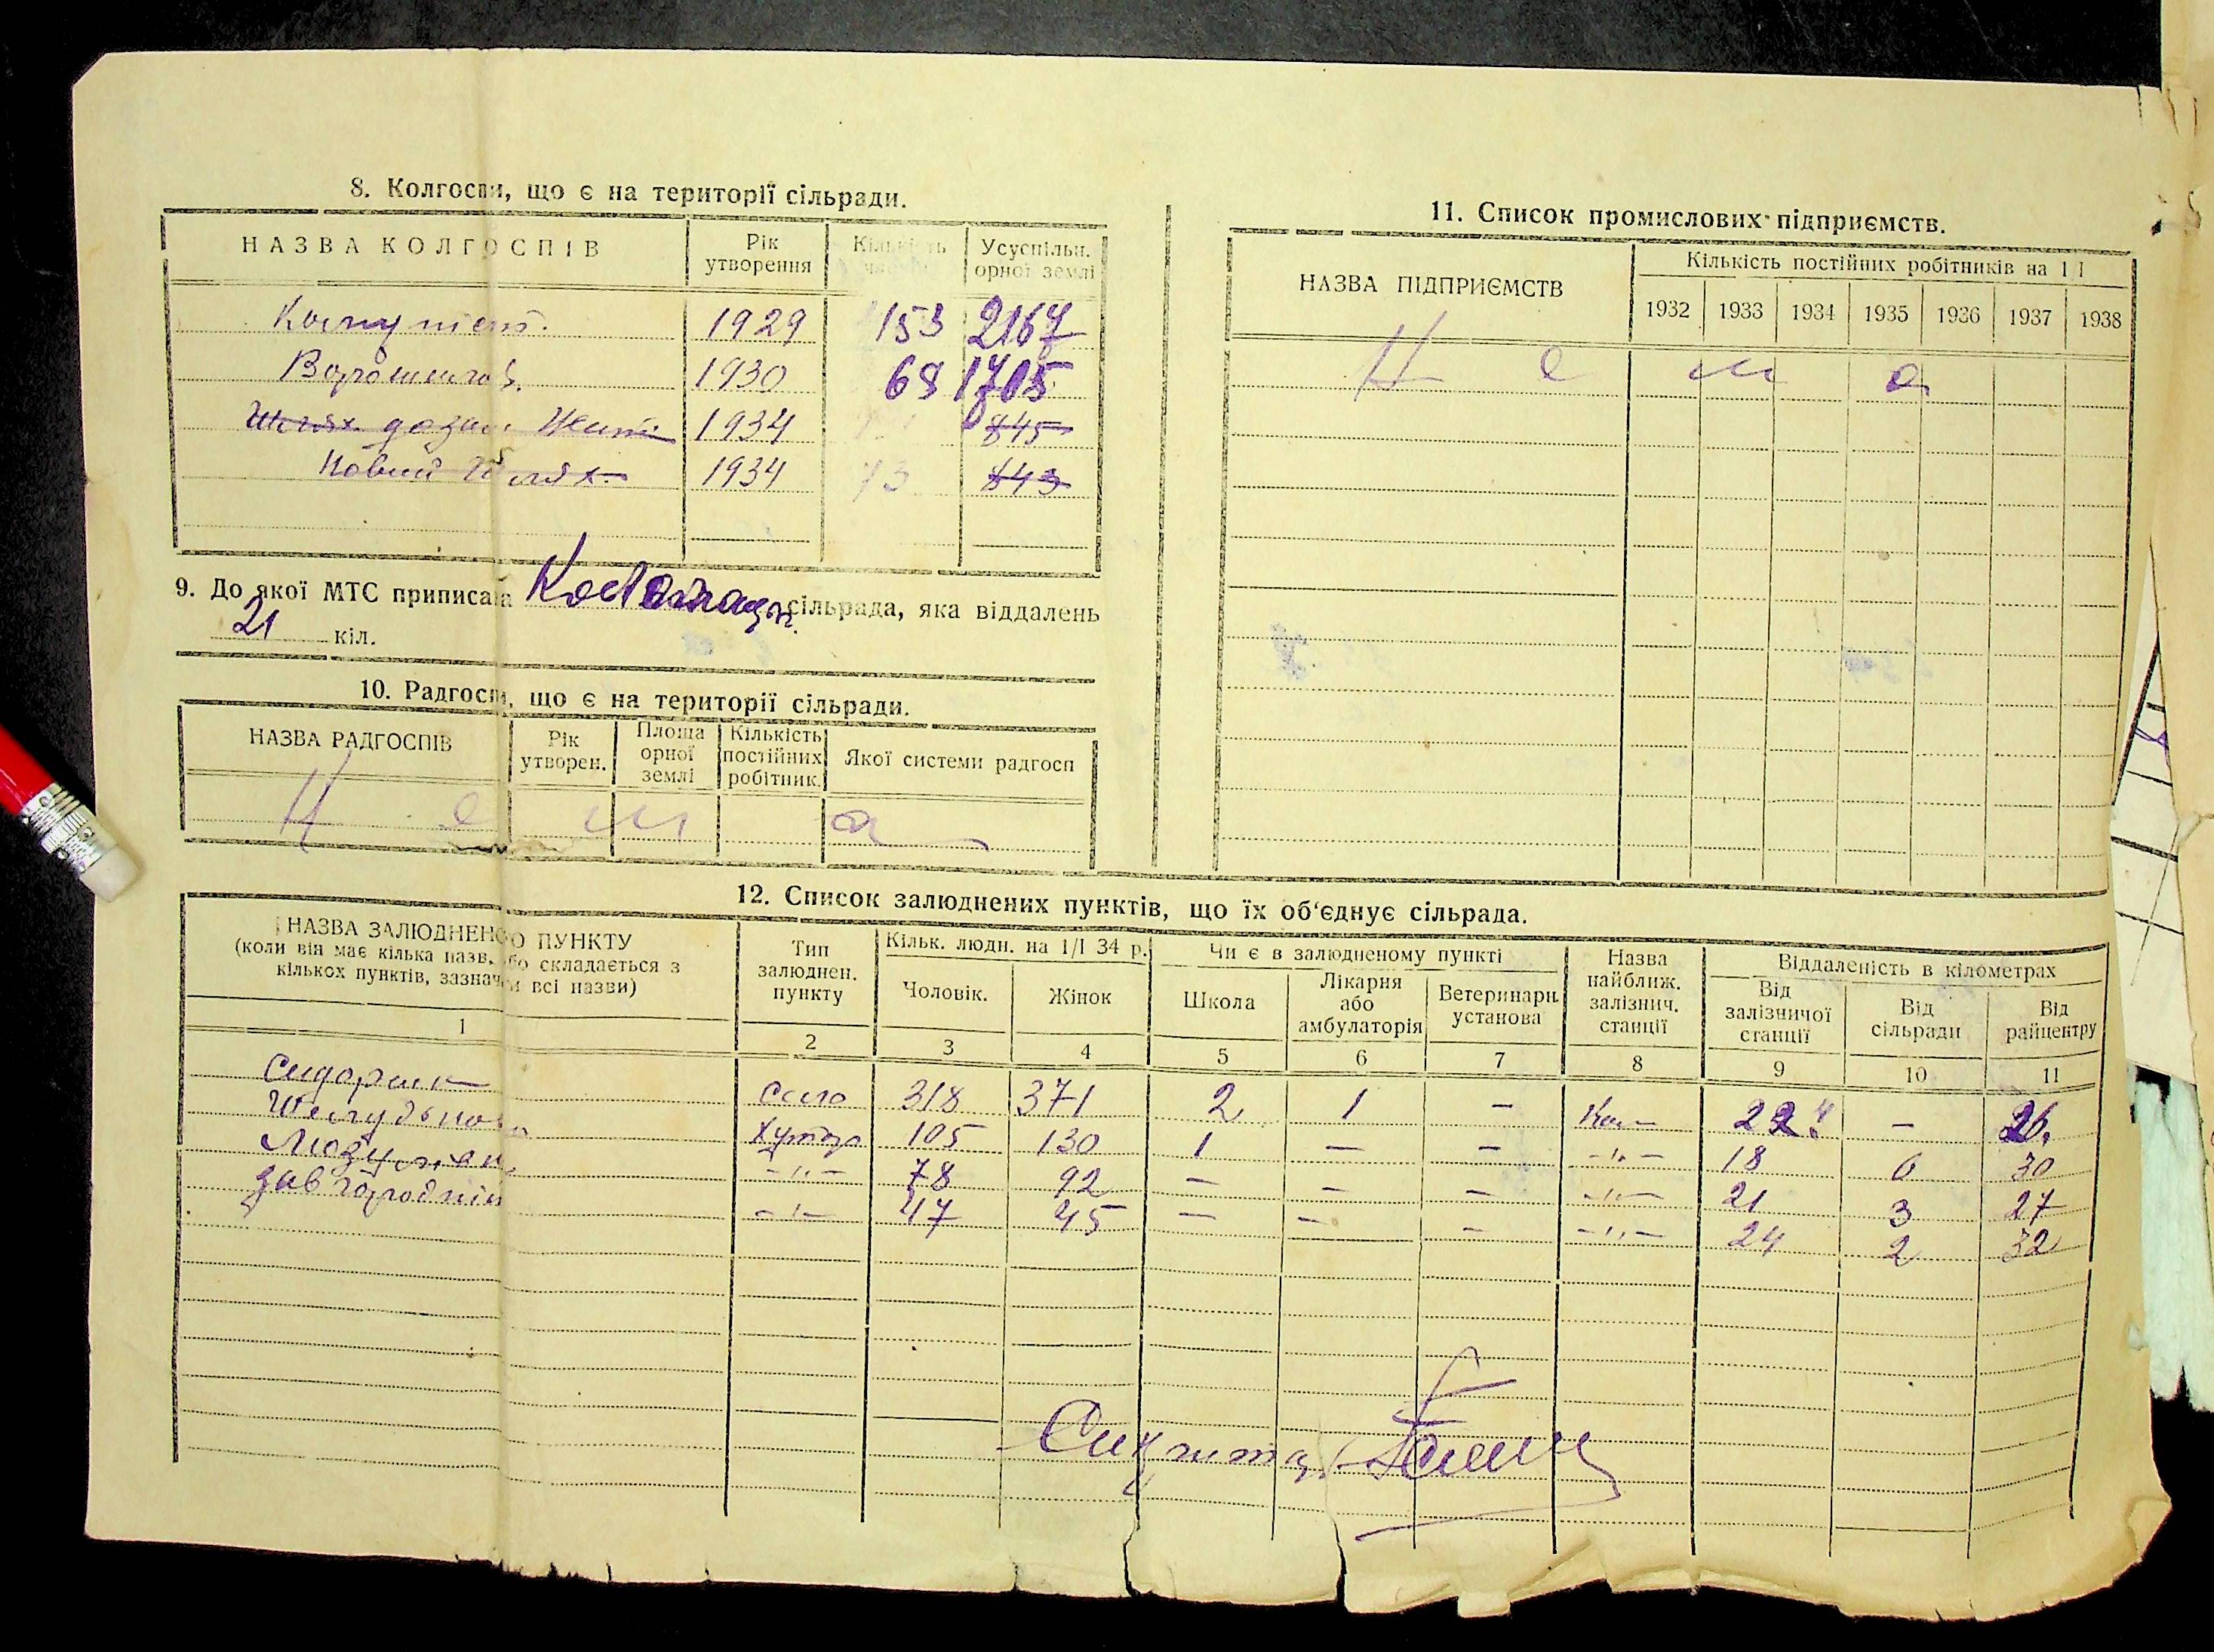 8. Колгоспи, що є на території сільради.
НАЗВА КОЛГОСПІВ
Рік утворення
Кількість
Усуспільн. орної землі
Комунист. 1929 153 2167
Ворошилов. 1930 68 1705
Шлях до зам. Жит 1934 845
Новий Шлях 1934 73 843
9. До якої МТС приписана сільрада, яка віддалень
21 кіл.
10. Радгоспи, що є на території сільради.
НАЗВА РАДГОСПІВ
Рік утворен.
Площа орної землі
Кількість постійних робітник.
Якої системи радгосп
Нема
11. Список промислових підприємств.
НАЗВА ПІДПРИЄМСТВ
Кількість постійних робітників на 1 І
1932 1933 1934 1935 1936 1937 1938
Нема
12. Список залюднених пунктів, що їх об'єднує сільрада.
НАЗВА ЗАЛЮДНЕНОГО ПУНКТУ
(коли він має кілька назв, або складається з
кількох пунктів, зазначити всі назви)
Тип залюднен. пункту
Кільк. людн. на 1/І 34 р.
Чоловік.
Жінок
Чи є в залюдненому пункті
Школа
Лікарня або амбулаторія
Ветеринарн. установа
Назва найближ. залізнич. станції
Віддаленість в кілометрах
Від залізничої станції
Від сільради
Від райцентру
1 2 3 4 5 6 7 8 9 10 11
село 318 371 2 1 – –
хутор 105 130 1 – – -"- 18 6 30
-"- 78 92 – – – -"- 21 3 27
Завгородній -"- 47 45 – – – -"- 24 2 32